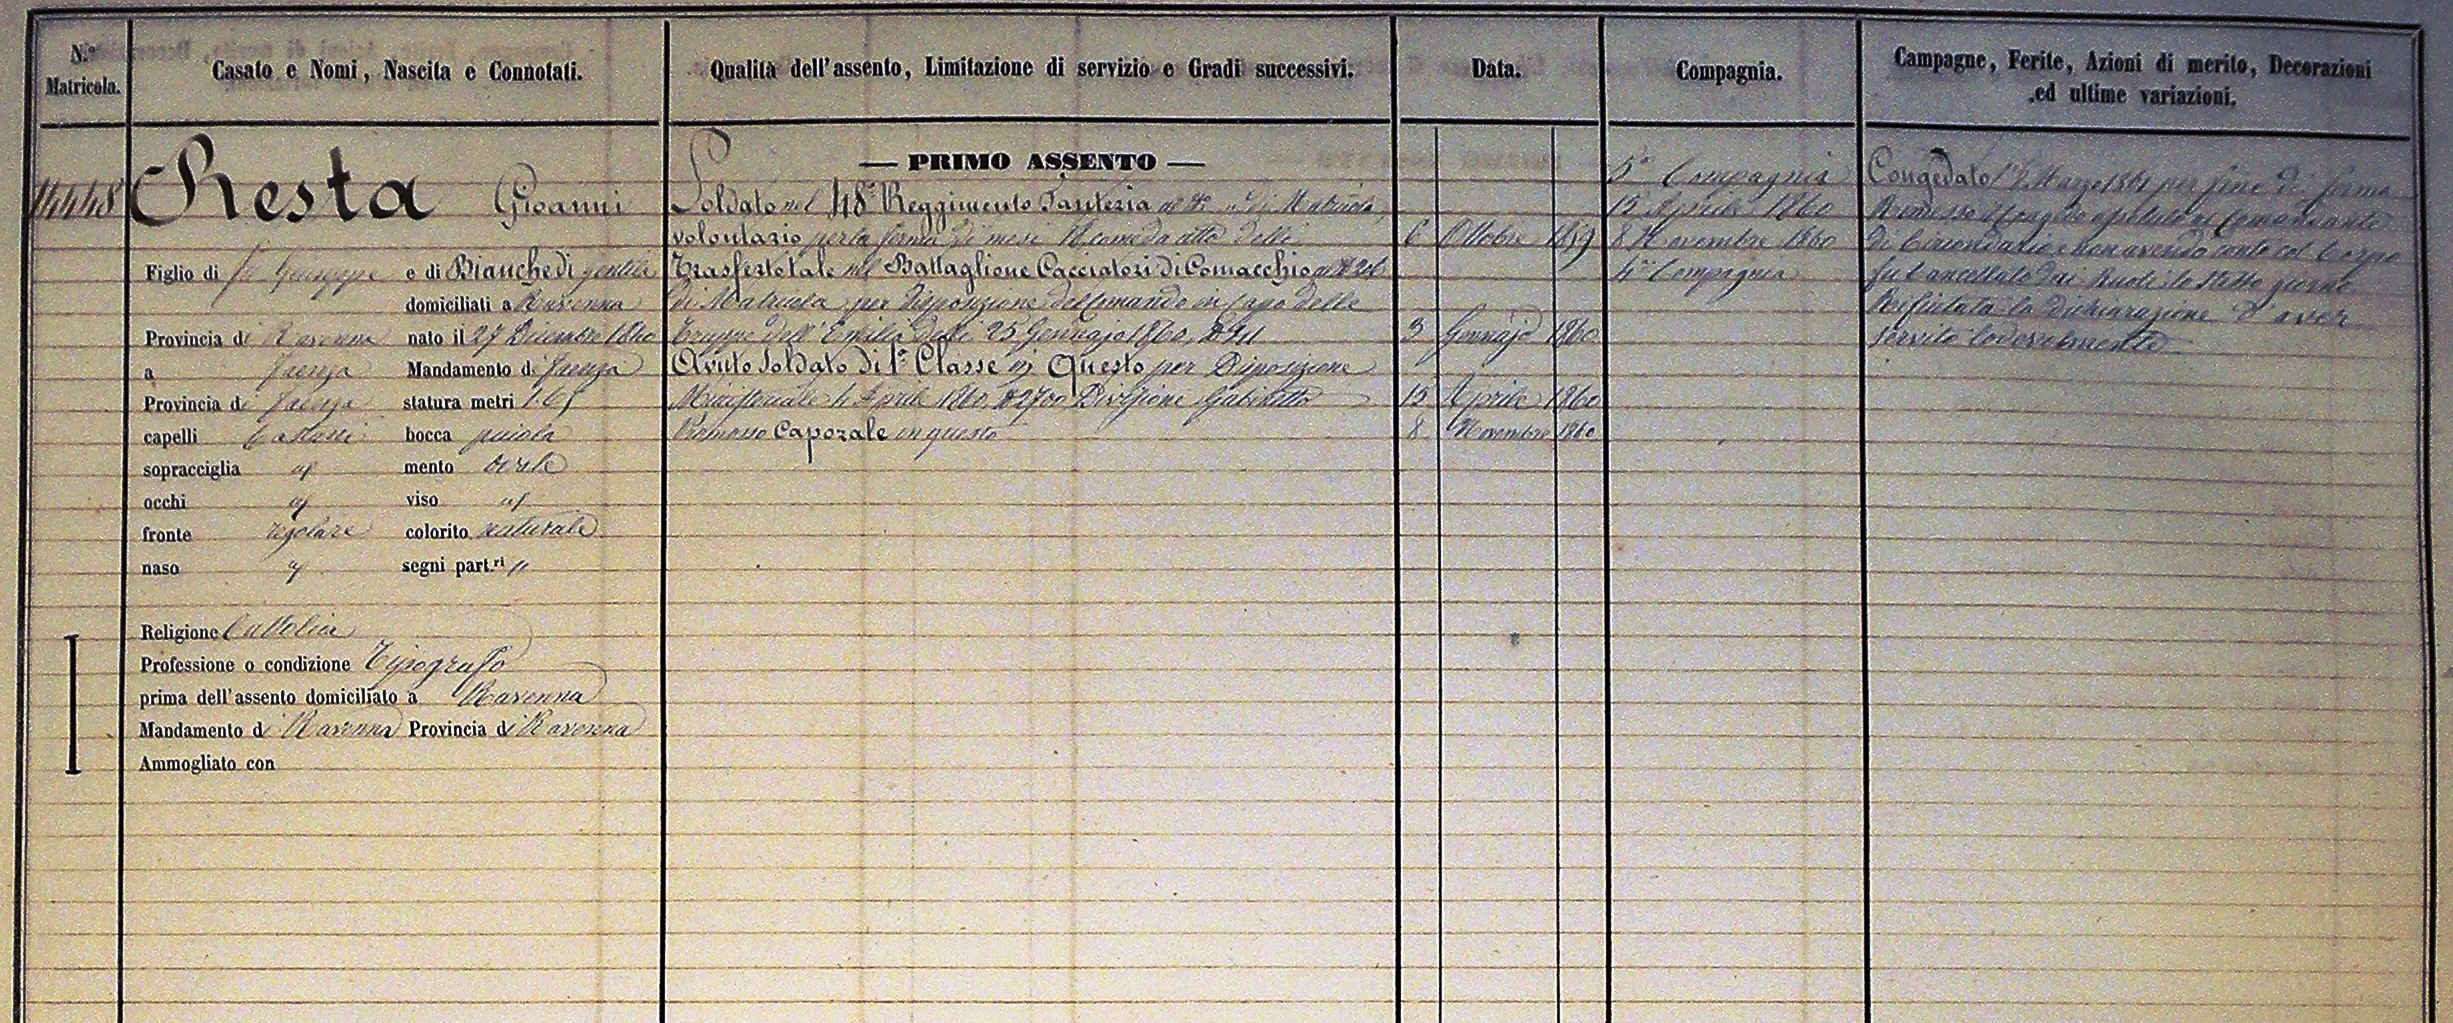 N.º Matricola.
Casato e Nomi, Nascita e Connotati.
Qualità dell'assento, Limitazione di servizio e Gradi successivi.
Data.
Compagnia.
Campagne, Ferite, Azioni di merito, Decorazioni
ed ultime variazioni.
14448
Resta Gioanni
Figlio di fu Giuseppe e di Bianchedi gentile
domiciliati a Ravenna
Provincia di Ravenna nato il 27 Dicembre 1840
a Faenza Mandamento di Faenza
Provincia di Faenza statura metri 1.65
capelli Castani bocca piccola
sopracciglia id mento ovale
occhi id viso id
fronte regolare colorito naturale
naso id segni part.ri "
Religione Cattolica
Professione o condizione Tipografo
prima dell'assento domiciliato a Ravenna
Mandamento di Ravenna Provincia di Ravenna
Ammogliato con
— PRIMO ASSENTO —
Soldato nel 48º Reggimento Fanteria al Nº " di Matricola
volontario per la ferma di mesi 18 come da atto delli 6 Ottobre 1859
Trasferto tale nel Battaglione Cacciatori di Comacchio al Nº
di Matricola per disposizione del Comando in Capo delle
Truppe dell'Emilia delli 25 Gennajo 1860, Nº 3 Gennajo 1860
Avuto Soldato di 1ª Classe in Questo per Disposizione
Ministeriale 4 Aprile 1860 Nº 2700 Divisione Gabinetto 15 Aprile 1860
Promosso Caporale in questo 8 Novembre 1860
5ª Compagnia
15 Aprile 1860
8 Novembre 1860
4ª Compagnia
Congedato Marzo 1861 per fine di ferma
Rimesso il congedo Comandante
di Circondario e non avendo conto col Corpo
fu Cancellato dai Ruoli lo stesso giorno
Rifiutata la Dichiarazione d'aver
servito lodevolmente